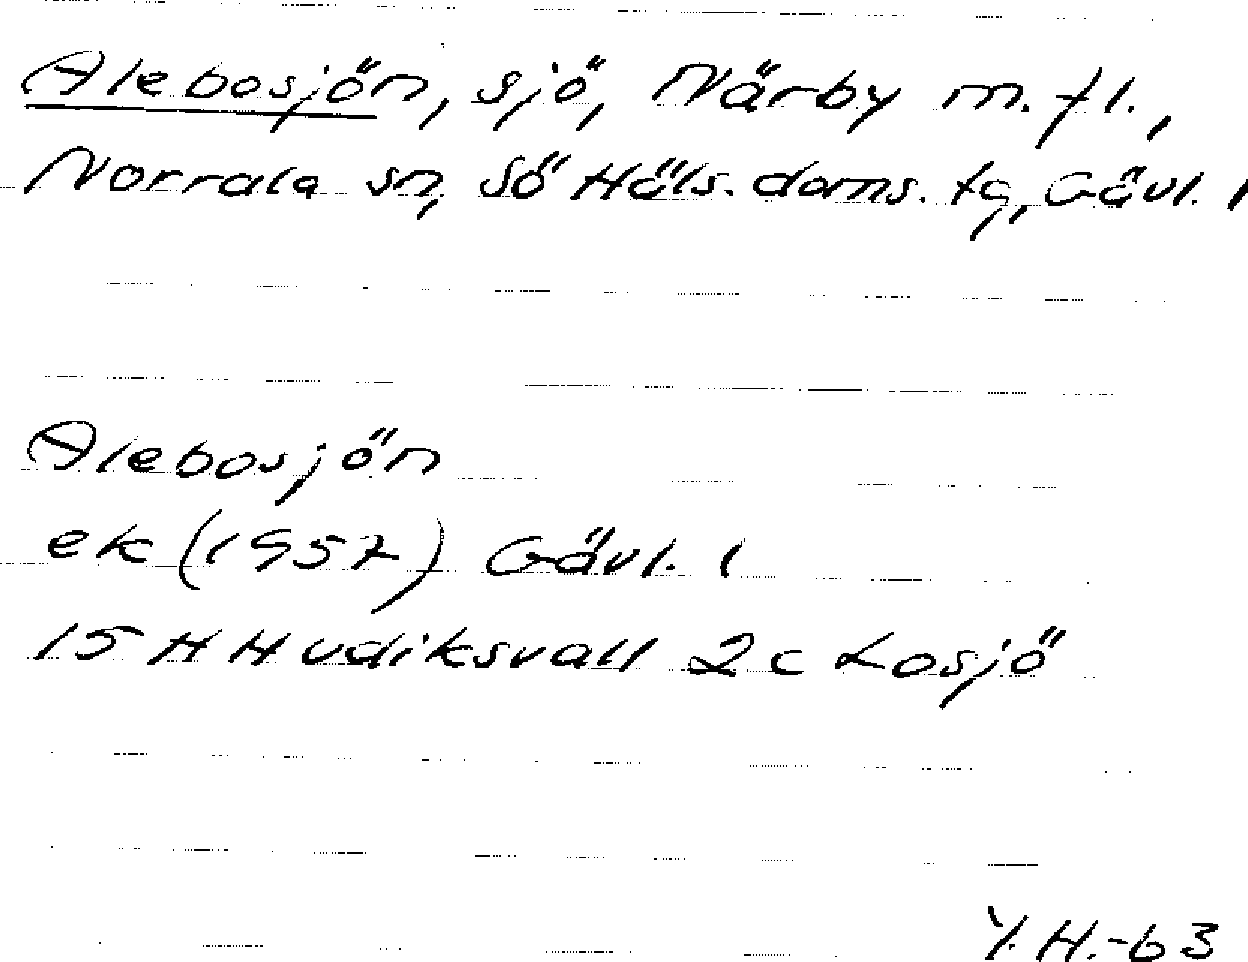 Alebosjön, sjö, Närby m.fl.,
Norrala sn, Sö Häls. doms. tg, Gävl. l
Alebosjön
ek (1957) Gävl. l
15 H Hudiksvall 2c Losjö
Y.H.-63